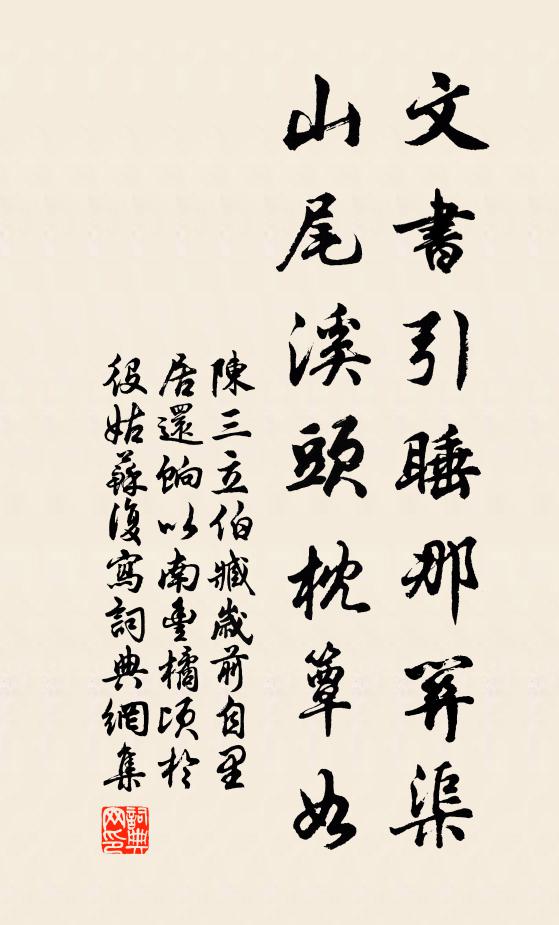 文書引睡那算渠
山尾溪頭枕簟如
陳三立伯臧歲前自里
居還餉以南豐橘頃於
役姑蘇復寫詞典網集
詞典
网印